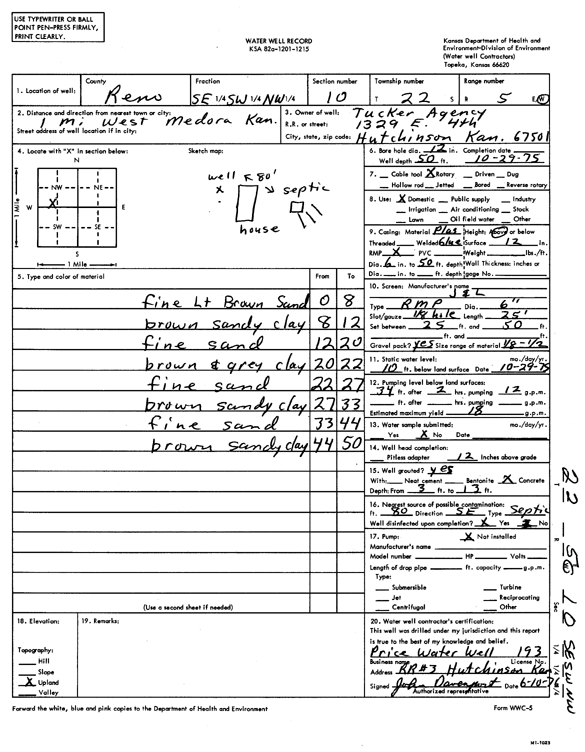 USE TYPEWRITER OR BALL
POINT PEN-PRESS FIRMLY,
PRINT CLEARLY.
WATER WELL RECORD
KSA 82a-1201-1215
Kansas Department of Health and
Environment-Division of Environment
(Water well Contractors)
Topeka, Kansas 66620
1. Location of well: County Reno Fraction SE 1/4 SW 1/4 NW 1/4 Section number 10 Township number T 22 S Range number R 5 E/W
2. Distance and direction from nearest town or city:
1 mi West Medora Kan.
Street address of well location if in city:
3. Owner of well: Tucker Agency
R.R. or street: 1329 E. 4th
City, state, zip code: Hutchinson Kan. 67501
4. Locate with "X" in section below:
N
NW NE
W X E
SW SE
S
1 Mile
1 Mile
Sketch map:
well 80'
x septic
house
6. Bore hole dia. 12 in. Completion date
Well depth 50 ft. 10-29-75
7. Cable tool X Rotary Driven Dug
Hollow rod Jetted Bored Reverse rotary
8. Use: X Domestic Public supply Industry
Irrigation Air conditioning Stock
Lawn Oil field water Other
9. Casing: Material Plas Height: Above or below
Threaded Welded Glue Surface 12 in.
RMP X PVC Weight lbs./ft.
Dia. 6 in. to 50 ft. depth Wall Thickness: inches or
Dia. in. to ft. depth gage No.
5. Type and color of material From To
fine Lt Brown Sand 0 8
brown sandy clay 8 12
fine sand 12 20
brown & grey clay 20 22
fine sand 22 27
brown sandy clay 27 33
fine sand 33 44
brown sandy clay 44 50
(Use a second sheet if needed)
10. Screen: Manufacturer's name
J & L
Type RMP Dia. 6"
Slot/gauze 1/8 hile Length 25'
Set between 25 ft. and 50 ft.
ft. and ft.
Gravel pack? yes Size range of material 1/8-1/2
11. Static water level: mo./day/yr.
10 ft. below land surface Date 10-29-75
12. Pumping level below land surfaces:
34 ft. after 2 hrs. pumping 12 g.p.m.
ft. after hrs. pumping g.p.m.
Estimated maximum yield 18 g.p.m.
13. Water sample submitted: mo./day/yr.
Yes X No Date
14. Well head completion:
Pitless adapter 12 Inches above grade
15. Well grouted? yes
With: Neat cement Bentonite X Concrete
Depth: From 3 ft. to 13 ft.
16. Nearest source of possible contamination:
ft. 80 Direction SE Type Septic
Well disinfected upon completion? X Yes No
17. Pump: X Not installed
Manufacturer's name
Model number HP Volts
Length of drop pipe ft. capacity g.p.m.
Type:
Submersible Turbine
Jet Reciprocating
Centrifugal Other
18. Elevation:
Topography:
Hill
Slope
X Upland
Valley
19. Remarks:
20. Water well contractor's certification:
This well was drilled under my jurisdiction and this report
is true to the best of my knowledge and belief.
Price Water Well 193
Business name License No.
Address RR#3 Hutchinson Kan
Signed John Davenport Date 6-10-76
Authorized representative
Forward the white, blue and pink copies to the Department of Health and Environment
Form WWC-5
T 22 - R 5 W Sec 10 1/4 1/4 1/4 SE SW NW